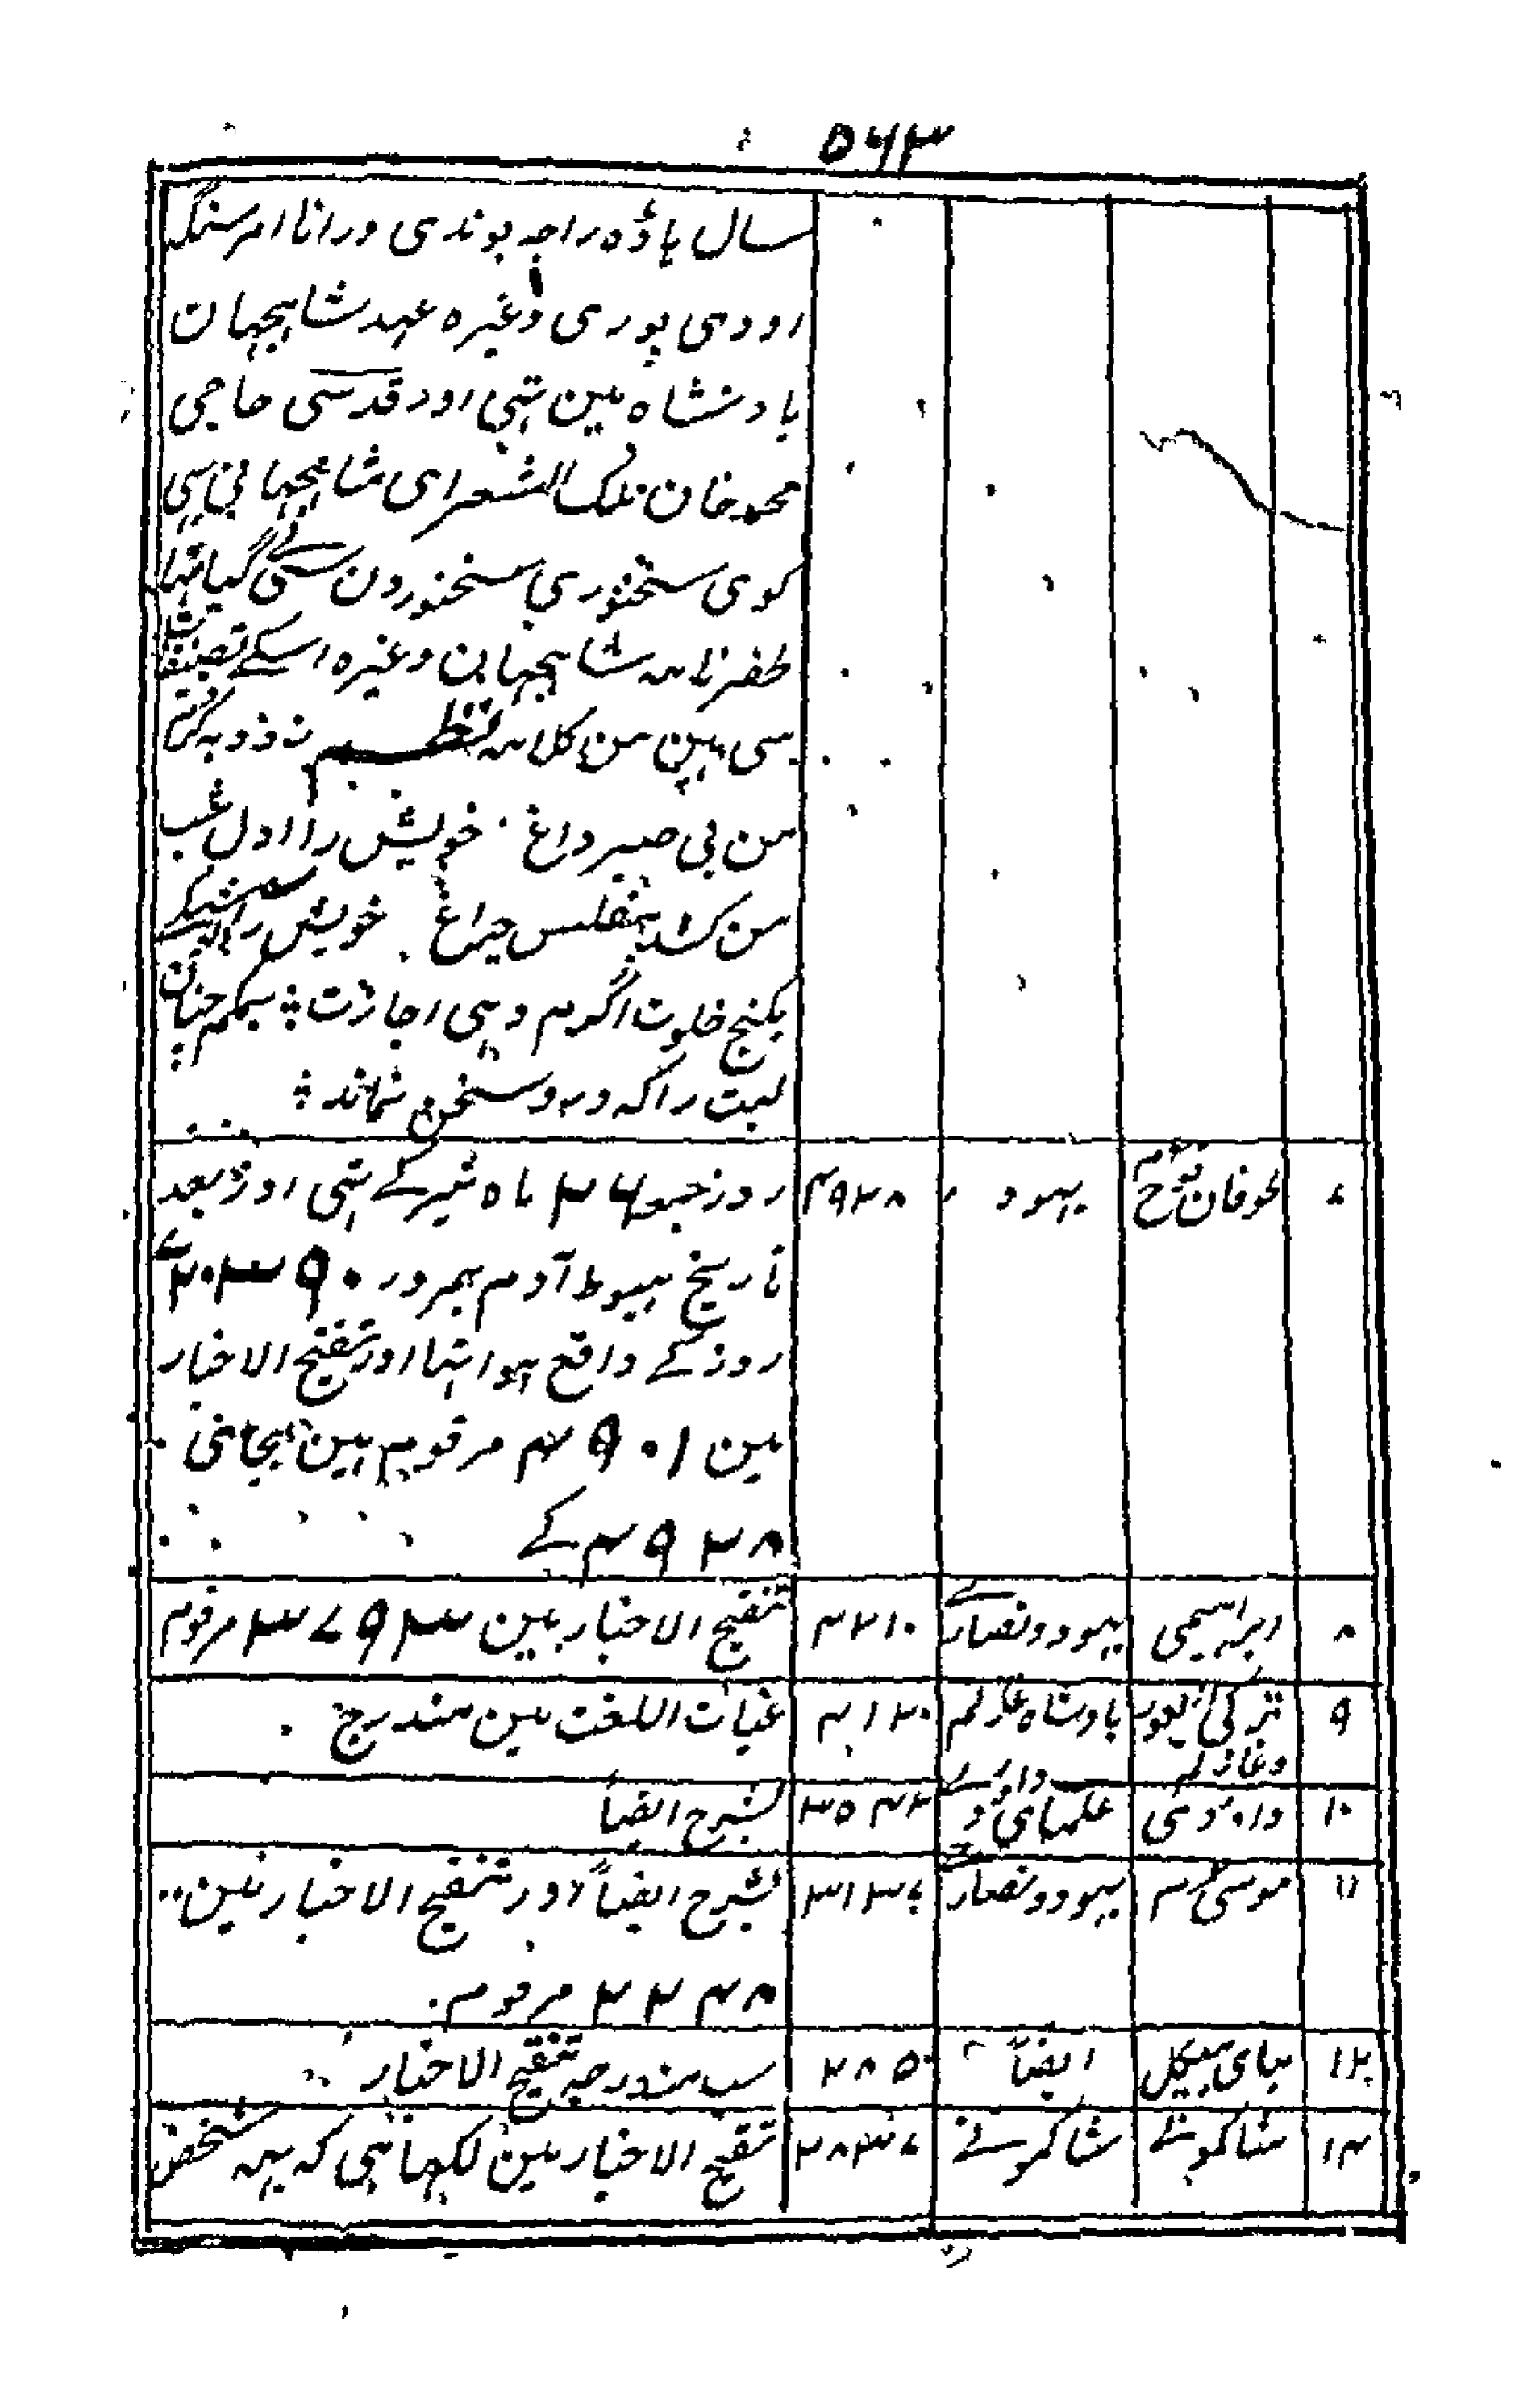 ۵۶۳
سال ہاڈہ راجہ بوندی و رانا امر سنگہ
اودی پوری وغیرہ عہد شاہجہان
بادشاہ مین تہی اور قدسی حاجی
محمد خان ملک الشعرای شاہجہانی سی
کوی سخنوری سخنورون سی گیا تہا
ظفر نامہ شاہجہان وغیرہ اسکے تصنیفات
سی ہین من کلامہ نظم
من بی صبر داغ خویش را اول شب
من کشد مفلس چراغ خویش را
بکنج خلوت اگرم دہی اجازت بمکم چنان
لبت را کہ درو سخن نماند
۷ طوفان نوح یہود ۴۹۳۸ روز جمعہ ۲۶ ماہ تیر کے تہی اور بعد
تاریخ ہبوط آدم بمرور
روز کے واقع ہوا تہا اور تنقیح الاخبار
مین ۴۹۰۱ مرقوم ہین بجای
۴۹۳۸ کے
۸ ابراہیمی یہود و نصاری ۴۲۱۰ تنقیح الاخبار مین ۳۷۹۳ مرقوم
۹ ترکی بادشاہ غیاث اللغت مین مندرج
۱۰ داؤدی علمای ۳۵۴۲ بشرح ایضاً
۱۱ موسی یہود و نصاری ۳۱۳۷ بشرح ایضاً اور تنقیح الاخبار مین
۲۲۴۸ مرقوم
۱۲ بنای ہیکل ایضاً ۲۸۵۰ سب مندرجہ تنقیح الاخبار
۱۳ شاکمونے شاکمونے ۲۸۳۷ تنقیح الاخبار مین لکہا ہی کہ یہہ شخص